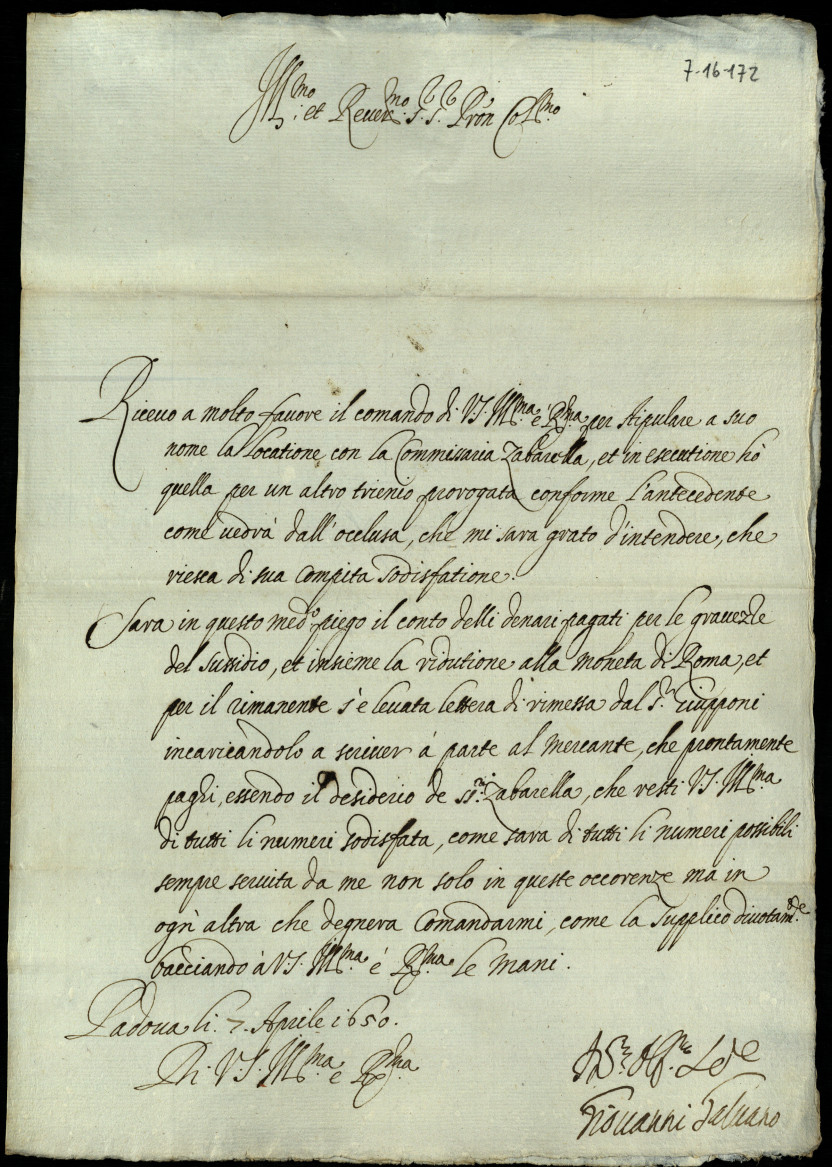 7-16-172
Ill.mo et Rever.mo S.S. Pron Col.mo
Riceuo a molto fauore il comando di V.S. Ill.ma è R.ma per stipulare a suo
nome la Locatione con la Commissaria Zabarella, et in esecutione hò
quella per un altro trienio prorogata conforme l'antecedente
come uedrà dall'occlusa, che mi sara grato d'intendere, che
riesca di sua Compita Sodisfatione.
Sara in questo med.o piego il conto delli denari pagati per le grauezze
del Sussidio, et insieme la ridutione alla moneta di Roma, et
per il rimanente s'è leuata lettera di rimessa dal S.r Giupponi
incaricandolo a scriuer à parte al Mercante, che prontamente
paghi, essendo il desiderio de SS.ri Zabarella, che resti V.S. Ill.ma
di tutti li numeri sodisfata, come sara di tutti li numeri possibili
sempre seruita da me non solo in queste occorenze ma in
ogn'altra che degnera Comandarmi, come la Supplico diuotam.te
bacciando à V.S. Ill.ma é R.ma le mani.
Padoua li 7. Aprile 1650.
Di V.S. Ill.ma e R.ma
Giouanni Galuano